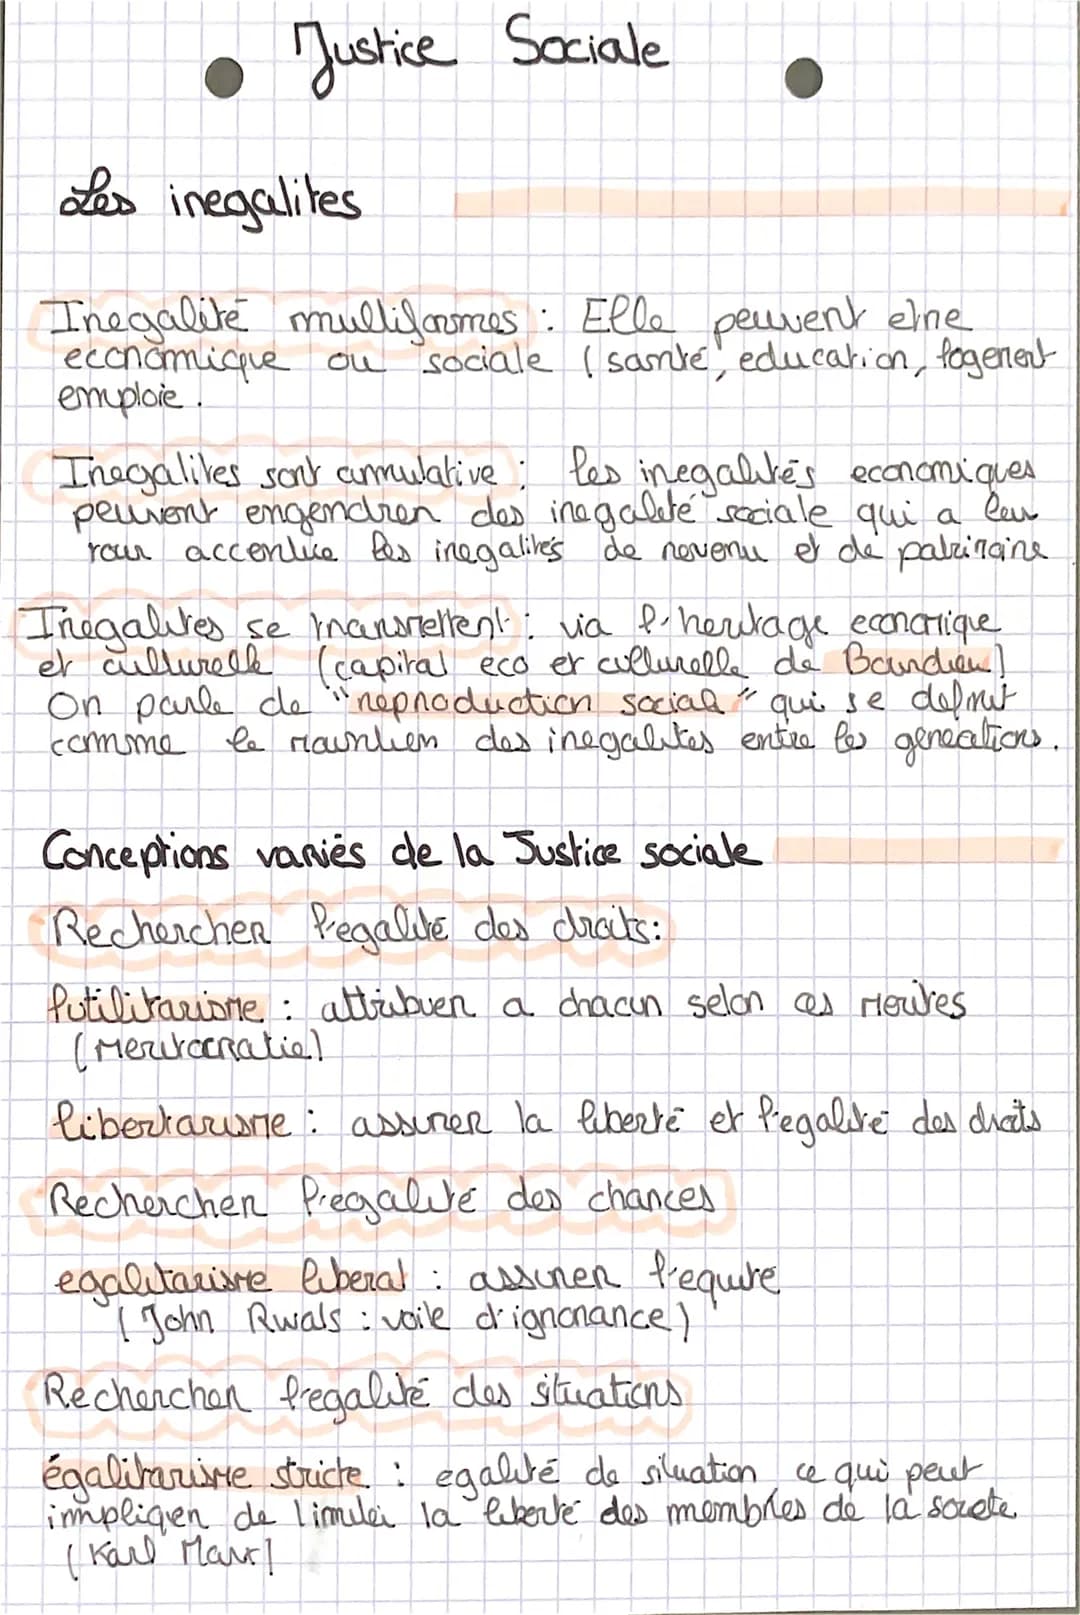 Justice Sociale
Les inegalites
Inegalité multiformes : Elle peuvent etre
economique ou sociale (santé, education, logement
emploie.
Inegalites sont cumulative : les inegalités economiques
peuvent engendrer des inegalité sociale qui a leur
tour accentue les inegalités de revenu et de patrimoine
Inegalites se transmettent : via l'heritage economique
et culturelle (capital eco et culturelle de Bourdieu)
On parle de "reproduction social" qui se definit
comme le maintien des inegalites entre les generations.
Conceptions variés de la Justice sociale
Rechercher l'egalité des droits:
l'utilitarisme : attribuer a chacun selon ces merites
(Meritocratie)
libertarisme : assurer la liberté et l'egalité des droits
Rechercher l'egalité des chances
egalitarisme liberal : assurer l'equité
(John Rwals : voile d'ignorance)
Rechercher l'egalité des situations
égalitarisme stricte : egalité de situation ce qui peut
impliquer de limiter la liberté des membres de la societe
(Karl Marx)